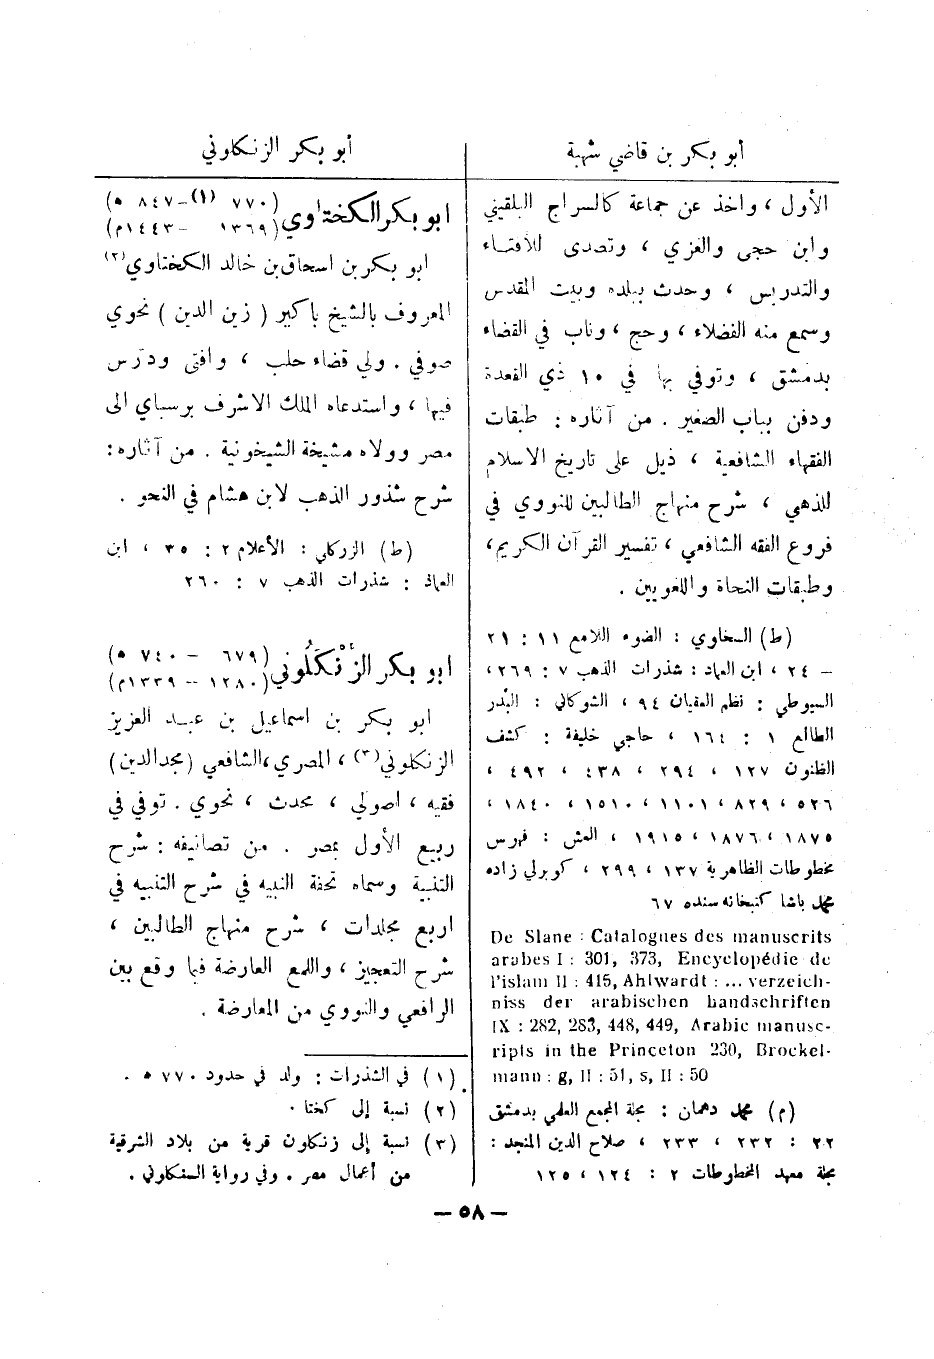 أبو بكر بن قاضي شهبة
الأول ، واخذ عن جماعة كالسراج البلقيني
وابن حجى والغزي ، وتصدى للافتاء
والتدريس ، وحدث ببلده وبيت المقدس
وسمع منه الفضلاء ، وحج ، وناب في القضاء
بدمشق ، وتوفي بها في ١٠ ذي القعدة
ودفن بباب الصغير . من آثاره : طبقات
الفقهاء الشافعية ، ذيل على تاريخ الاسلام
للذهبي ، شرح منهاج الطالبين للنووي في
فروع الفقه الشافعي ، تفسير القرآن الكريم ،
وطبقات النحاة واللغويين .
(ط) السخاوي : الضوء اللامع ١١ : ٢١
– ٢٤ ، ابن العماد : شذرات الذهب ٧ : ٢٦٩ ،
السيوطي : نظم العقيان ٩٤ ، الشوكاني : البدر
الطالع ١ : ١٦٤ ، حاجي خليفة : كشف
الظنون ١٢٧ ، ٢٩٤ ، ٤٣٨ ، ٤٩٢ ،
٥٢٦ ، ٨٢٩ ، ١١٠١ ، ١٥١٠ ، ١٨٤٠ ،
١٨٧٥ ، ١٨٧٦ ، ١٩١٥ ، العش : فهرس
مخطوطات الظاهرية ١٣٧ ، ٢٩٩ ، كوبرلي زاده
محمد باشا كتبخانه سنده ٦٧
De Slane : Catalogues des manuscrits
arabes I : 301, 373, Encyclopédie de
l'islam II : 415, Ahlwardt : ... verzeich-
niss der arabischen handschriften
IX : 282, 283, 448, 449, Arabic manusc-
ripts in the Princeton 230, Brockel-
mann : g, II : 51, s, II : 50
(م) محمد دهمان : مجلة المجمع العلمي بدمشق
٢٢ : ٢٣٢ ، ٢٣٣ ، صلاح الدين المنجد :
مجلة معهد المخطوطات ٢ : ١٢٤ ، ١٢٥
أبو بكر الزنكاوني
ابو بكر الكختاوي (٧٧٠ (١) – ٨٤٧ ه)
(١٣٦٩ – ١٤٤٣م)
ابو بكر بن اسحاق بن خالد الكختاوي (٢)
المعروف بالشيخ باكير ( زين الدين ) نحوي
صوفي . ولي قضاء حلب ، وافتى ودرّس
فيها ، واستدعاه الملك الاشرف برسباي الى
مصر وولاه مشيخة الشيخونية . من آثاره :
شرح شذور الذهب لابن هشام في النحو .
(ط) الزركلي : الأعلام ٢ : ٣٥ ، ابن
العماد : شذرات الذهب ٧ : ٢٦٠
ابو بكر الزَنْكَلُوني (٦٧٩ – ٧٤٠ ه)
(١٢٨٠ – ١٣٣٩م)
ابو بكر بن اسماعيل بن عبد العزيز
الزنكلوني (٣) ، المصري ، الشافعي (مجد الدين)
فقيه ، اصولي ، محدث ، نحوي . توفي في
ربيع الأول بمصر . من تصانيفه : شرح
التنبية وسماه تحفة النبيه في شرح التنبيه في
اربع مجلدات ، شرح منهاج الطالبين ،
شرح التعجيز ، واللمع العارضة فيما وقع بين
الرافعي والنووي من المعارضة .
(١) في الشذرات : ولد في حدود ٧٧٠ ه .
(٢) نسبة إلى كختا .
(٣) نسبة إلى زنكلون قرية من بلاد الشرقية
من أعمال مصر . وفي رواية السنكلوني .
– ٥٨ –